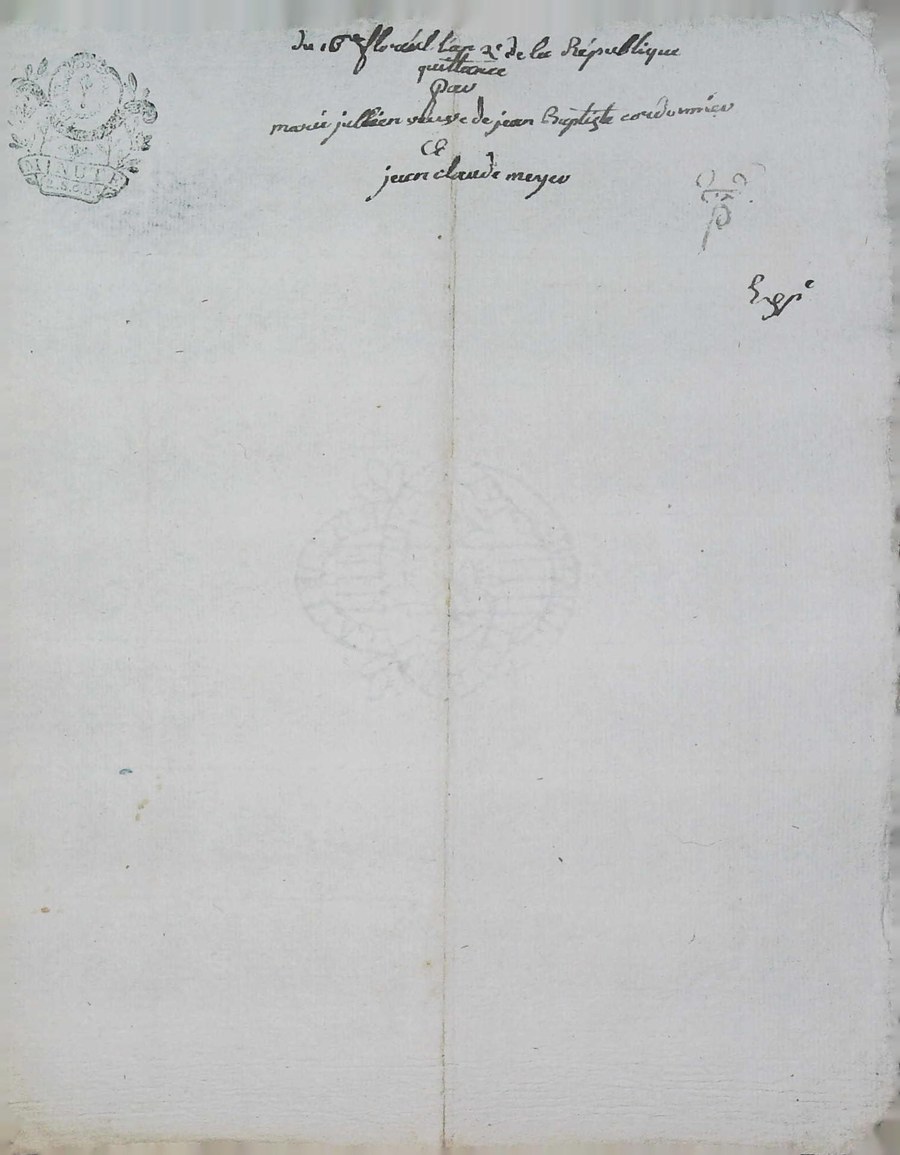 du 16e floréal l'an 2e de la République
quittance
par
marie jullien veuve de jean Baptiste cordonnier
&
jean claude meyer
MINUTE
Exp.e